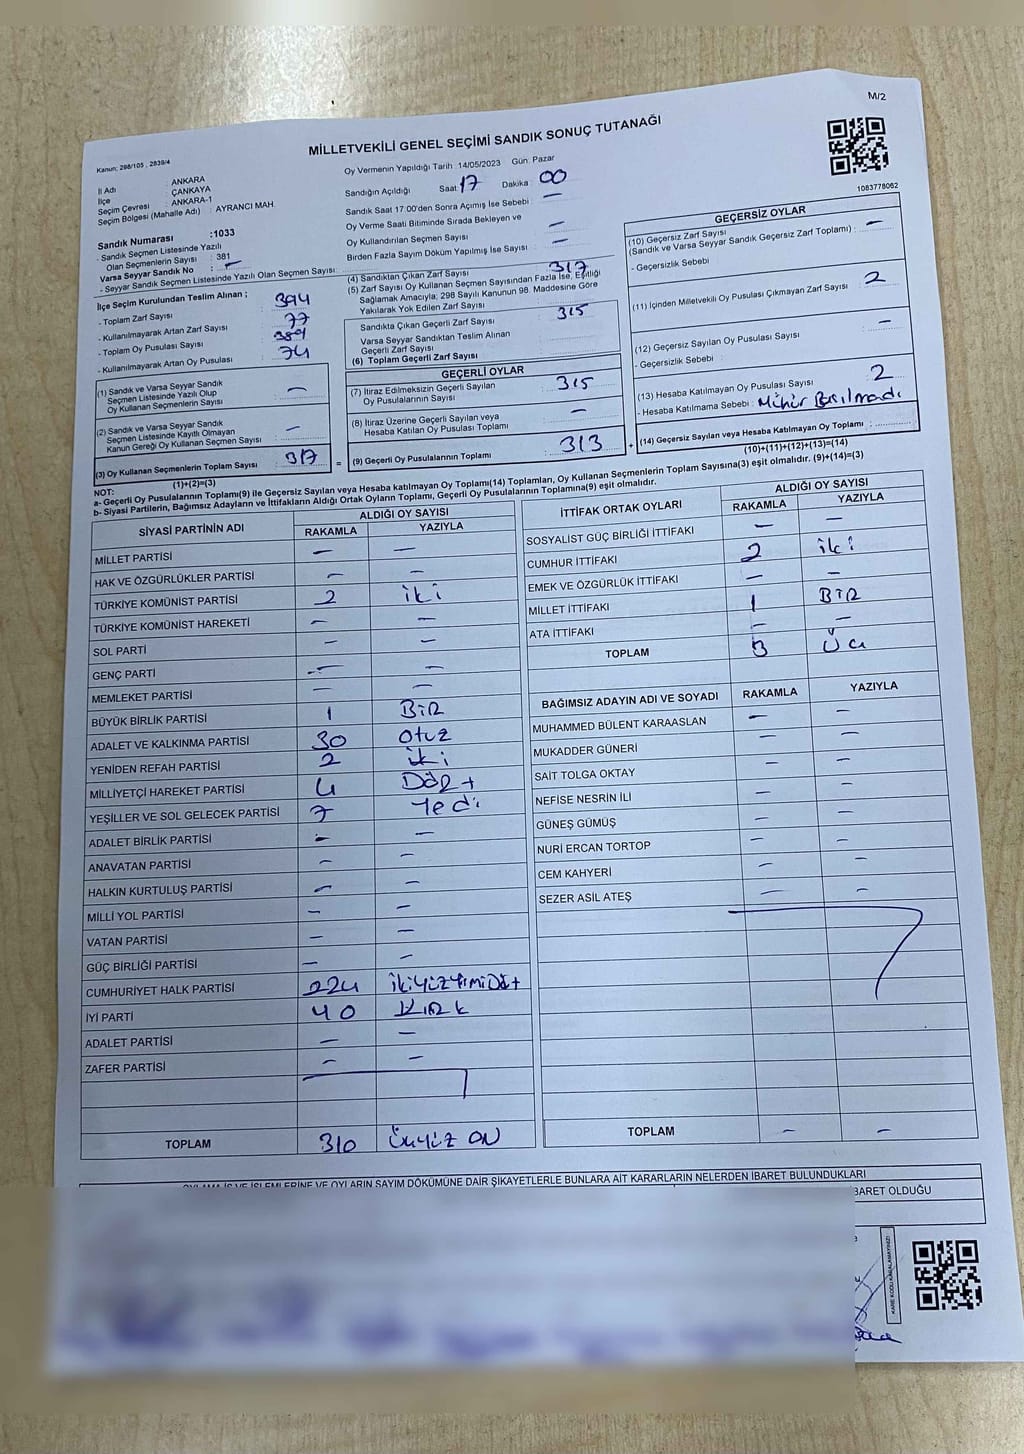 M/2
MİLLETVEKİLİ GENEL SEÇİMİ SANDIK SONUÇ TUTANAĞI
Kanun: 298/105 , 2839/4
İl Adı : ANKARA
İlçe : ÇANKAYA
Seçim Çevresi : ANKARA-1
Seçim Bölgesi (Mahalle Adı) : AYRANCI MAH.
Sandık Numarası :1033
- Sandık Seçmen Listesinde Yazılı
Olan Seçmenlerin Sayısı : 381
Varsa Seyyar Sandık No : —
- Seyyar Sandık Seçmen Listesinde Yazılı Olan Seçmen Sayısı:
Oy Vermenin Yapıldığı Tarih :14/05/2023 Gün: Pazar
Sandığın Açıldığı Saat: 17 Dakika : 00
Sandık Saat 17:00'den Sonra Açımış İse Sebebi : —
Oy Verme Saati Bitiminde Sırada Bekleyen ve
Oy Kullandırılan Seçmen Sayısı : —
Birden Fazla Sayım Döküm Yapılmış İse Sayısı : —
1083778062
İlçe Seçim Kurulundan Teslim Alınan ;
- Toplam Zarf Sayısı : 394
- Kullanılmayarak Artan Zarf Sayısı : 77
- Toplam Oy Pusulası Sayısı : 389
- Kullanılmayarak Artan Oy Pusulası : 74
(1) Sandık ve Varsa Seyyar Sandık
Seçmen Listesinde Yazılı Olup
Oy Kullanan Seçmenlerin Sayısı : —
(2) Sandık ve Varsa Seyyar Sandık
Seçmen Listesinde Kayıtlı Olmayan
Kanun Gereği Oy Kullanan Seçmen Sayısı : —
(3) Oy Kullanan Seçmenlerin Toplam Sayısı : 317
(1)+(2)=(3)
(4) Sandıktan Çıkan Zarf Sayısı : 317
(5) Zarf Sayısı Oy Kullanan Seçmen Sayısından Fazla İse, Eşitliği
Sağlamak Amacıyla; 298 Sayılı Kanunun 98. Maddesine Göre
Yakılarak Yok Edilen Zarf Sayısı :
Sandıkta Çıkan Geçerli Zarf Sayısı : 315
Varsa Seyyar Sandıktan Teslim Alınan
Geçerli Zarf Sayısı
(6) Toplam Geçerli Zarf Sayısı
GEÇERLİ OYLAR
(7) İtiraz Edilmeksizin Geçerli Sayılan
Oy Pusulalarının Sayısı : 315
(8) İtiraz Üzerine Geçerli Sayılan veya
Hesaba Katılan Oy Pusulası Toplamı : —
= (9) Geçerli Oy Pusulalarının Toplamı : 313
GEÇERSİZ OYLAR
(10) Geçersiz Zarf Sayısı
(Sandık ve Varsa Seyyar Sandık Geçersiz Zarf Toplamı) : —
- Geçersizlik Sebebi
(11) İçinden Milletvekili Oy Pusulası Çıkmayan Zarf Sayısı : 2
(12) Geçersiz Sayılan Oy Pusulası Sayısı : —
- Geçersizlik Sebebi :
(13) Hesaba Katılmayan Oy Pusulası Sayısı : 2
- Hesaba Katılmama Sebebi : Mühür Basılmadı
+ (14) Geçersiz Sayılan veya Hesaba Katılmayan Oy Toplamı :
(10)+(11)+(12)+(13)=(14)
NOT:
a- Geçerli Oy Pusulalarının Toplamı(9) ile Geçersiz Sayılan veya Hesaba katılmayan Oy Toplamı(14) Toplamları, Oy Kullanan Seçmenlerin Toplam Sayısına(3) eşit olmalıdır. (9)+(14)=(3)
b- Siyasi Partilerin, Bağımsız Adayların ve İttifakların Aldığı Ortak Oyların Toplamı, Geçerli Oy Pusulalarının Toplamına(9) eşit olmalıdır.
SİYASİ PARTİNİN ADI ALDIĞI OY SAYISI
RAKAMLA YAZIYLA
MİLLET PARTİSİ — —
HAK VE ÖZGÜRLÜKLER PARTİSİ — —
TÜRKİYE KOMÜNİST PARTİSİ 2 iki
TÜRKİYE KOMÜNİST HAREKETİ — —
SOL PARTİ — —
GENÇ PARTİ — —
MEMLEKET PARTİSİ — —
BÜYÜK BİRLİK PARTİSİ 1 BİR
ADALET VE KALKINMA PARTİSİ 30 otuz
YENİDEN REFAH PARTİSİ 2 iki
MİLLİYETÇİ HAREKET PARTİSİ 4 DÖRt
YEŞİLLER VE SOL GELECEK PARTİSİ 7 Yedi
ADALET BİRLİK PARTİSİ — —
ANAVATAN PARTİSİ — —
HALKIN KURTULUŞ PARTİSİ — —
MİLLİ YOL PARTİSİ — —
VATAN PARTİSİ — —
GÜÇ BİRLİĞİ PARTİSİ — —
CUMHURİYET HALK PARTİSİ 224 ikiyüzyirmiDört
İYİ PARTİ 40 KIRK
ADALET PARTİSİ — —
ZAFER PARTİSİ — —
TOPLAM 310 üçyüz ON
İTTİFAK ORTAK OYLARI ALDIĞI OY SAYISI
RAKAMLA YAZIYLA
SOSYALİST GÜÇ BİRLİĞİ İTTİFAKI — —
CUMHUR İTTİFAKI 2 iki
EMEK VE ÖZGÜRLÜK İTTİFAKI — —
MİLLET İTTİFAKI 1 BİR
ATA İTTİFAKI — —
TOPLAM 3 Üç
BAĞIMSIZ ADAYIN ADI VE SOYADI RAKAMLA YAZIYLA
MUHAMMED BÜLENT KARAASLAN — —
MUKADDER GÜNERİ — —
SAİT TOLGA OKTAY — —
NEFİSE NESRİN İLİ — —
GÜNEŞ GÜMÜŞ — —
NURİ ERCAN TORTOP — —
CEM KAHYERİ — —
SEZER ASİL ATEŞ — —
TOPLAM — —
OYLAMA İŞ VE İŞLEMLERİNE VE OYLARIN SAYIM DÖKÜMÜNE DAİR ŞİKAYETLERLE BUNLARA AİT KARARLARIN NELERDEN İBARET BULUNDUKLARI
BARET OLDUĞU
KARE KODU KARALAMAYINIZ!